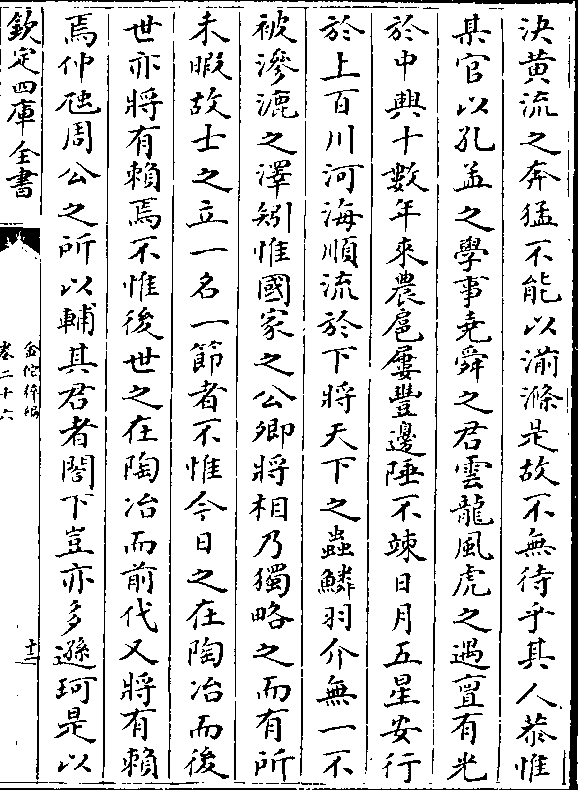 決黄流之奔猛不能以湔滌是故不無待乎其人恭惟
某官以孔孟之學事堯舜之君雲龍風虎之遇亶有光
於中興十數年來農扈屢豐邊陲不竦日月五星安行
於上百川河海順流於下將天下之蟲鱗羽介無一不
被滲漉之澤矧惟國家之公卿將相乃獨略之而有所
未暇故士之立一名一節者不惟今日之在陶冶而後
世亦將有賴焉不惟後世之在陶冶而前代又將有賴
焉仲虺周公之所以輔其君者閤下豈亦多遜珂是以
欽定四庫全書
金佗稡編
卷二十六
十二